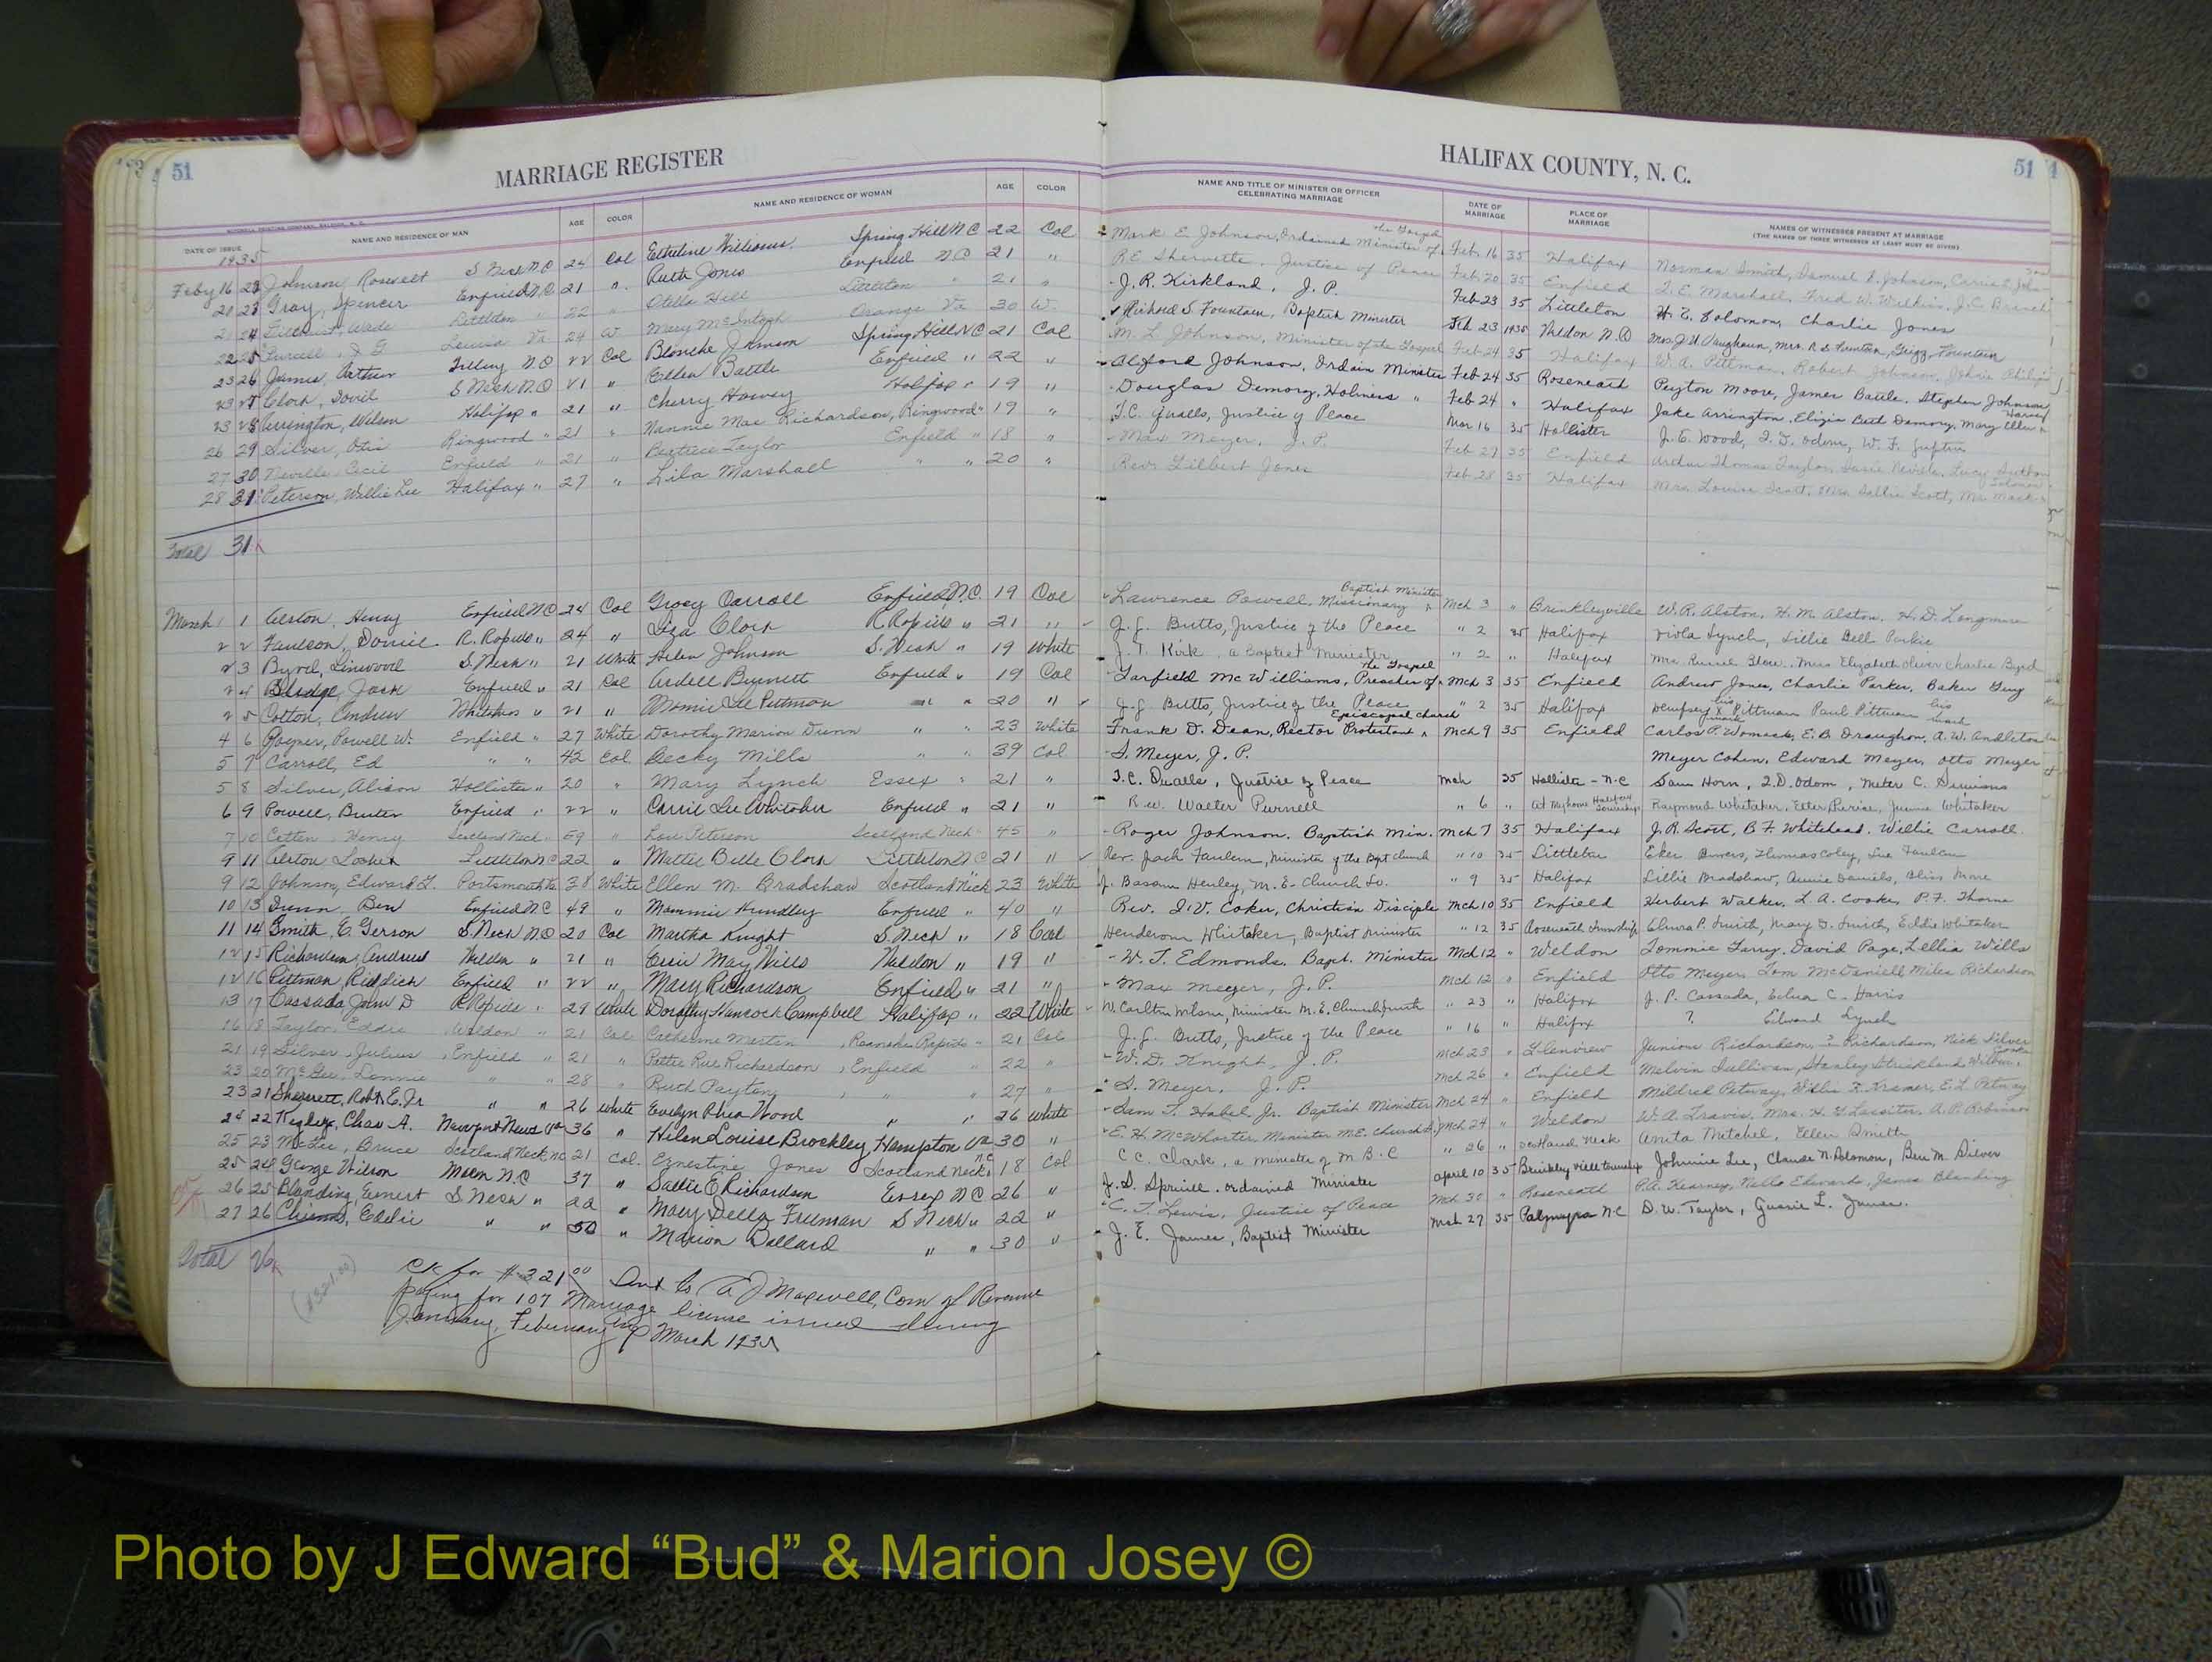 51
MARRIAGE REGISTER
DATE OF ISSUE NAME AND RESIDENCE OF MAN AGE COLOR NAME AND RESIDENCE OF WOMAN AGE COLOR
1935
Feby 16 Johnson, Rosevelt S Neck N.C 24 Col Etheline Williams Spring Hill N C 22 Col
21 23 Gray, Spencer Enfield N.C 21 " Ruth Jones Enfield N C 21 "
21 24 Wade Littleton " 22 " Otella Hill Littleton " 21 "
22 25 Louisa Va 24 W Mary McIntosh Orange Va 30 W
23 26 James, Arthur Tillery N.C 22 Col Blonche Johnson Spring Hill N C 21 Col
23 27 Clark, David S Neck N.C 21 " Ellen Battle Enfield " 22 "
23 28 Arrington, Wilson Halifax " 21 " Cherry Harvey Halifax " 19 "
26 29 Silver, Otis Ringwood " 21 " Nannie Mae Richardson, Ringwood " 19 "
27 30 Neville, Cecil Enfield " 21 " Beatrice Taylor Enfield " 18 "
28 31 Peterson, Willie Lee Halifax " 27 " Lila Marshall " " 20 "
Total 31
March 1 1 Alston, Henry Enfield N C 24 Col Gracy Carroll Enfield N.C. 19 Col
2 2 Faulcon, Daniel R. Rapids " 24 " Liza Clark R Rapids " 21 "
2 3 Byrd, Linwood S. Neck " 21 White Helen Johnson S. Neck " 19 White
2 4 Bludge, Jack Enfield " 21 Col Ardell Burnett Enfield " 19 Col
2 5 Cotton, Andrew Whitakers " 21 " Mamie Lee Pittman " " 20 "
4 6 Rayner, Powell W. Enfield " 27 White Dorothy Marion Dunn " " 23 White
5 7 Carroll, Ed " " 42 Col. Becky Mills " " 39 Col
5 8 Silver, Alison Hollister " 20 " Mary Lynch Essex " 21 "
6 9 Powell, Buster Enfield " 22 " Carrie Lee Whitaker Enfield " 21 "
7 10 Cotten, Henry Scotland Neck " 59 " Lou Peterson Scotland Neck " 45 "
9 11 Alston Littleton N C 22 " Mattie Belle Clark Littleton N C 21 "
9 12 Johnson, Edward L. Portsmouth Va 38 White Ellen M. Bradshaw Scotland Neck 23 White
10 13 Dunn, Ben Enfield N C 49 " Mammie Hundley Enfield " 40 "
11 14 Smith, E. Gerson S. Neck N.C 20 Col Martha Knight S. Neck " 18 Col
12 15 Richardson, Andrew Weldon " 21 " Essie May Wills Weldon " 19 "
12 16 Pittman, Riddick Enfield " 22 " Mary Richardson Enfield " 21 "
13 17 Cassada, John D R Rapids " 29 White Dorothy Hancock Campbell Halifax " 22 White
16 18 Taylor, Eddie Weldon " 21 Col Catherine Martin, Roanoke Rapids " 21 Col
21 19 Silver, Julius, Enfield " 21 " Pattie Rue Richardson, Enfield " 22 "
23 20 McGee, Lonnie " " 28 " Ruth Payton, " " 27 "
23 21 Sherrett, Robt E. Jr " " 26 White Evelyn Rhea Wood " " 26 White
25 22 Kegley, Chas A. Newport News Va 36 " Helen Louise Brockley, Hampton Va 30 "
25 23 Bruce Scotland Neck NC 21 Col. Ernestine Jones Scotland Neck NC 18 Col
25 24 George Wilson Macon N.C 37 " Sallie E Richardson Essex N C 26 "
26 25 Blanding, Earnest S Neck " 22 " Mary Della Freeman S Neck " 22 "
27 26 Eddie " " 50 " Marion Ballard " " 30 "
Total 26
(321.00)
CK for $321.00 Sent to A J Maxwell, Com of Revenue
paying for 107 Marriage license issued during
January, February & March 1935
HALIFAX COUNTY, N. C.
51
NAME AND TITLE OF MINISTER OR OFFICER CELEBRATING MARRIAGE DATE OF MARRIAGE PLACE OF MARRIAGE NAMES OF WITNESSES PRESENT AT MARRIAGE
(THE NAMES OF THREE WITNESSES AT LEAST MUST BE GIVEN)
Mark E. Johnson, Ordained Minister of the Gospel Feb. 16 35 Halifax Norman Smith, Samuel D. Johnson, Carrie E. John
R E Shervette, Justice of Peace Feb 20 35 Enfield T. E. Marshall, Fred W. Wilkins, J. C. Branch
J. R. Kirkland, J. P. Feb 23 35 Littleton H. E. Solomon, Charlie Jones
Richard S. Fountain, Baptist Minister Feb 23 1935 Weldon N.C Mrs. J. N. Vaughaun, Mrs. R. S. Fountain, Grigg Fountain
M. L Johnson, Minister of the Gospel Feb 24 35 Halifax W. A. Pittman, Robert Johnson, Johnie Philips
Alford Johnson, Ordain Minister Feb 24 35 Roseneath Peyton Moore, James Battle, Stephen Johnson
Douglas Demory, Holiness " Feb 24 " Halifax Jake Arrington, Elizia Bell Demory, Mary Ellen Harvey
T. C. Qualls, Justice of Peace Mar 16 35 Hollister J. E. Wood, I. D. Odom, W. F. Jupten
Max Meyer, J. P. Feb 27 35 Enfield Arthur Thomas Taylor, Susie Neville, Lucy Sutton
Rev. Gilbert Jones Feb 28 35 Halifax Mrs. Louisa Scott, Mrs Sallie Scott, Mr Mack
Lawrence Powell, Missionary Baptist Minister Mch 3 " Brinkleyville W. R. Alston, H. M. Alston, H. D. Longmire
J. J. Butts, Justice of the Peace " 2 35 Halifax Viola Lynch, Lillie Bell Parker
J. T. Kirk, a Baptist Minister " 2 " Halifax Mrs. Russell Glow, Miss Elizabeth Oliver Charlie Byrd
Garfield McWilliams, Preacher of the Gospel Mch 3 35 Enfield Andrew Jones, Charlie Parker, Baker Grey
J. J. Butts, Justice of the Peace " 2 35 Halifax Dempsey his x mark Pittman Paul Pittman his mark
Frank D. Dean, Rector Protestant Episcopal Church Mch 9 35 Enfield Carlos P. Womack, E. B. Draughon, A. W. Andleton
S. Meyer, J. P. Meyer Cohen, Edward Meyer, Otto Meyer
T. C. Qualls, Justice of Peace Mch 35 Hollister - N.C Sam Horn, I. D. Odom, Meter C. Simmons
Rev. Walter Purnell " 6 " At My home Halifax Township Raymond Whitaker, Ester Pierse, Junnie Whitaker
Roger Johnson, Baptist Min. Mch 7 35 Halifax J. R. Scott, B. F. Whitehead, Willie Carroll
Rev. Jack Faulcon, Minister of the Bapt Church " 10 35 Littleton Eker Bowers, Thomas Coley, Sue Faulcon
J. Bascom Henley, M. E. Church So. " 9 35 Halifax Lillie Bradshaw, Annie Daniels, Bliss More
Rev. I. V. Coker, Christian Disciple Mch 10 35 Enfield Herbert Walker, L. A. Cooke, P. F. Thorne
Henderson Whitaker, Baptist Minister " 12 35 Roseneath Township Elnora P. Smith, Mary G. Smith, Eddie Whitaker
W. T. Edmonds, Bapt. Minister Mch 12 " Weldon Tommie Garry, David Page, Lellia Wills
Max Meyer, J. P. Mch 12 " Enfield Otto Meyer Tom McDaniell Miles Richardson
W. Carlton Wilson, Minister M. E. Church South " 23 " Halifax J. P. Cassada, Edna C. Harris
J. J. Butts, Justice of the Peace " 16 " Halifax ? Edward Lynch
W. D. Knight, J. P. Mch 23 " Glenview Junious Richardson, ? Richardson, Nick Silver
S. Meyer, J. P. Mch 26 " Enfield Melvin Sullivan, Stanley Strickland, Wilbur
Sam T. Habel Jr. Baptist Minister Mch 24 " Enfield Mildred Pitway, Willie F. Framer, E. L. Pitway
E. H. McWhorter, Minister M.E. Church Mch 24 " Weldon W. A. Travis, Mrs. H. G. Lassiter, A. P. Robinson
C C. Clark, a minister of M. B. C " 26 " Scotland Neck Anita Mitchel, Ellen Smith
J. S. Spruill, ordained Minister April 10 35 Brinkleyville township Johnnie Lee, Claude N. Solomon, Ben M. Silver
C. T. Lewis, Justice of Peace Mch 30 " Roseneath P. A. Kearney, Nella Edwards, James Blanding
J. E. James, Baptist Minister Mch 27 35 Palmyra N C D. W. Taylor, Gussie L. James.
Photo by J Edward “Bud” & Marion Josey ©